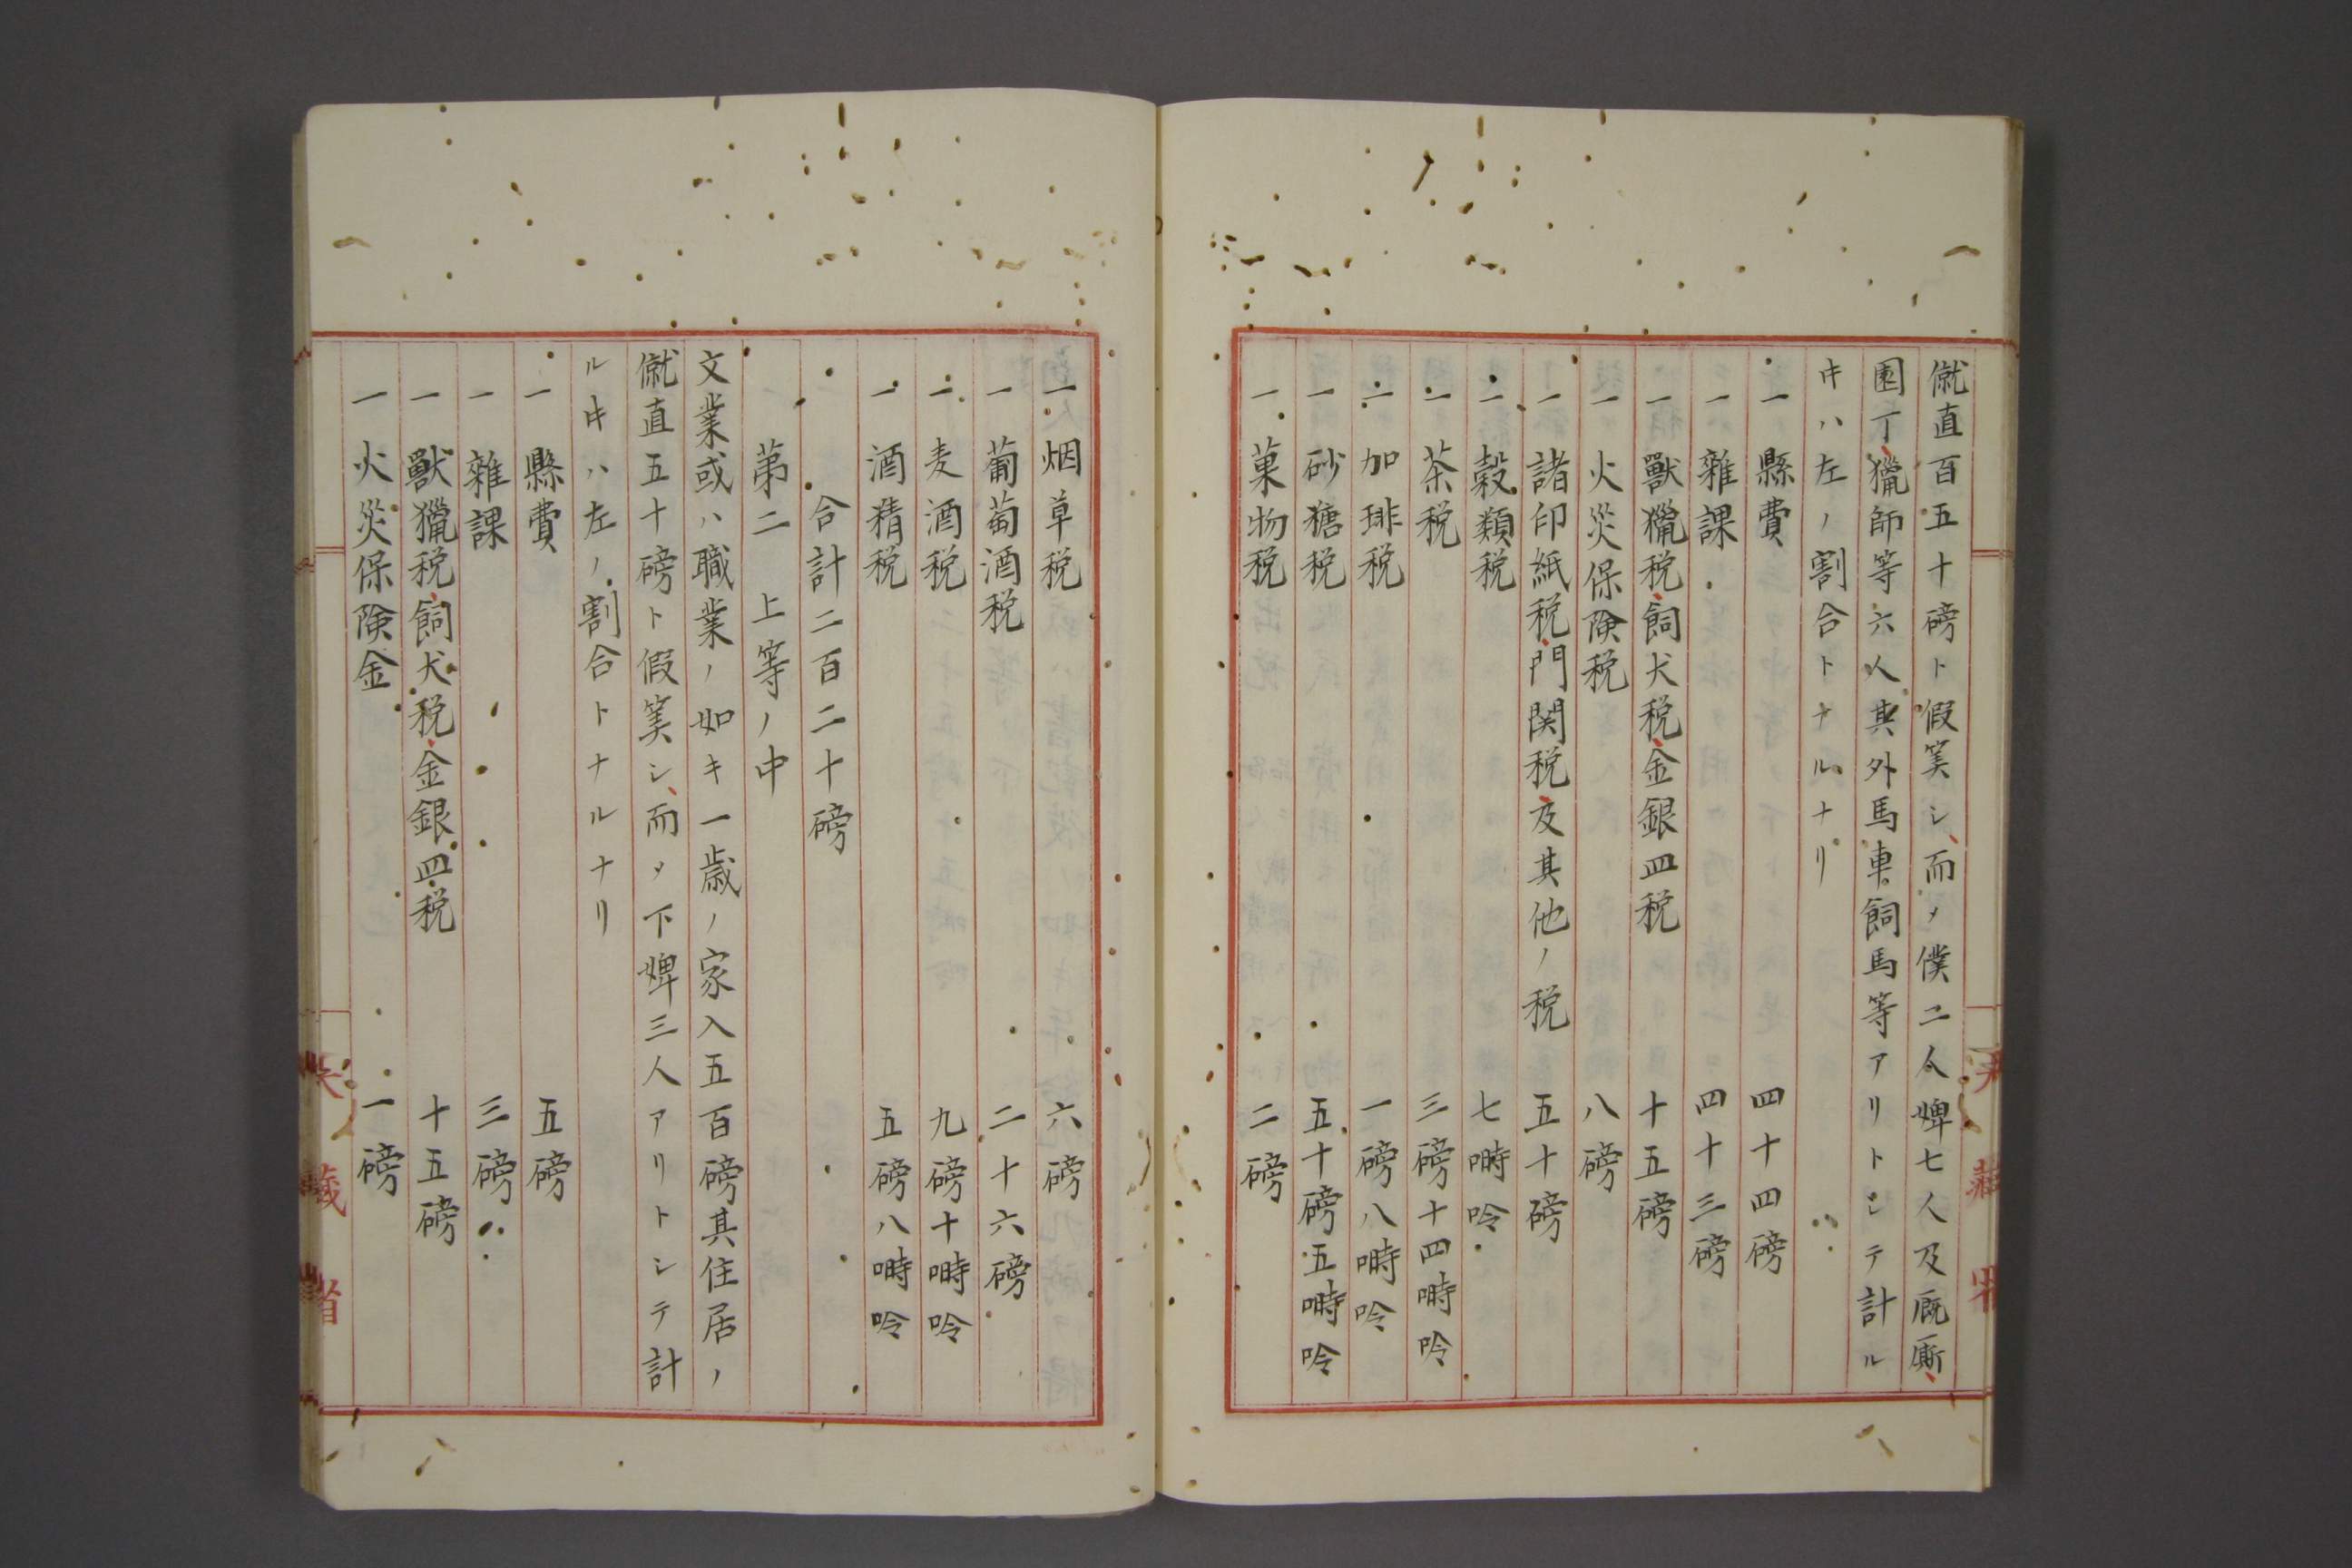 僦直百五十磅ト假筭シ、而メ僕二人婢七人及厩厮、
園丁、獵師等六人其外馬車飼馬等アリトシテ計ル
キハ左ノ割合トナルナリ
一 縣費 四十四磅
一 雜課 四十三磅
一 獸獵税、飼犬税、金銀皿税 十五磅
一 火災保険税 八磅
一 諸印紙税、門関税、及其他ノ税 五十磅
一 穀類税 七嘶呤
一 茶税 三磅十四嘶呤
一 加琲税 一磅八嘶呤
一 砂糖税 五十磅五嘶呤
一 菓物税 二磅
一 烟草税 六磅
一 葡萄酒税 二十六磅
一 麦酒税 九磅十嘶呤
一 酒精税 五磅八嘶呤
合計二百二十磅
第二 上等ノ中
文業或ハ職業ノ如キ一歳ノ家入五百磅其住居ノ
僦直五十磅ト假筭シ、而メ下婢三人アリトシテ計
ルキハ左ノ割合トナルナリ
一 縣費 五磅
一 雜課 三磅
一 獸獵税、飼犬税、金銀皿税 十五磅
一 火災保険金 一磅